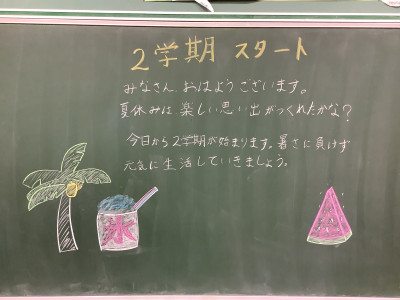 2学期 スタート
みなさん、おはようございます。
夏休みは、楽しい思い出がつくれたかな？
今日から2学期が始まります。暑さに負けず
元気に生活していきましょう。
氷